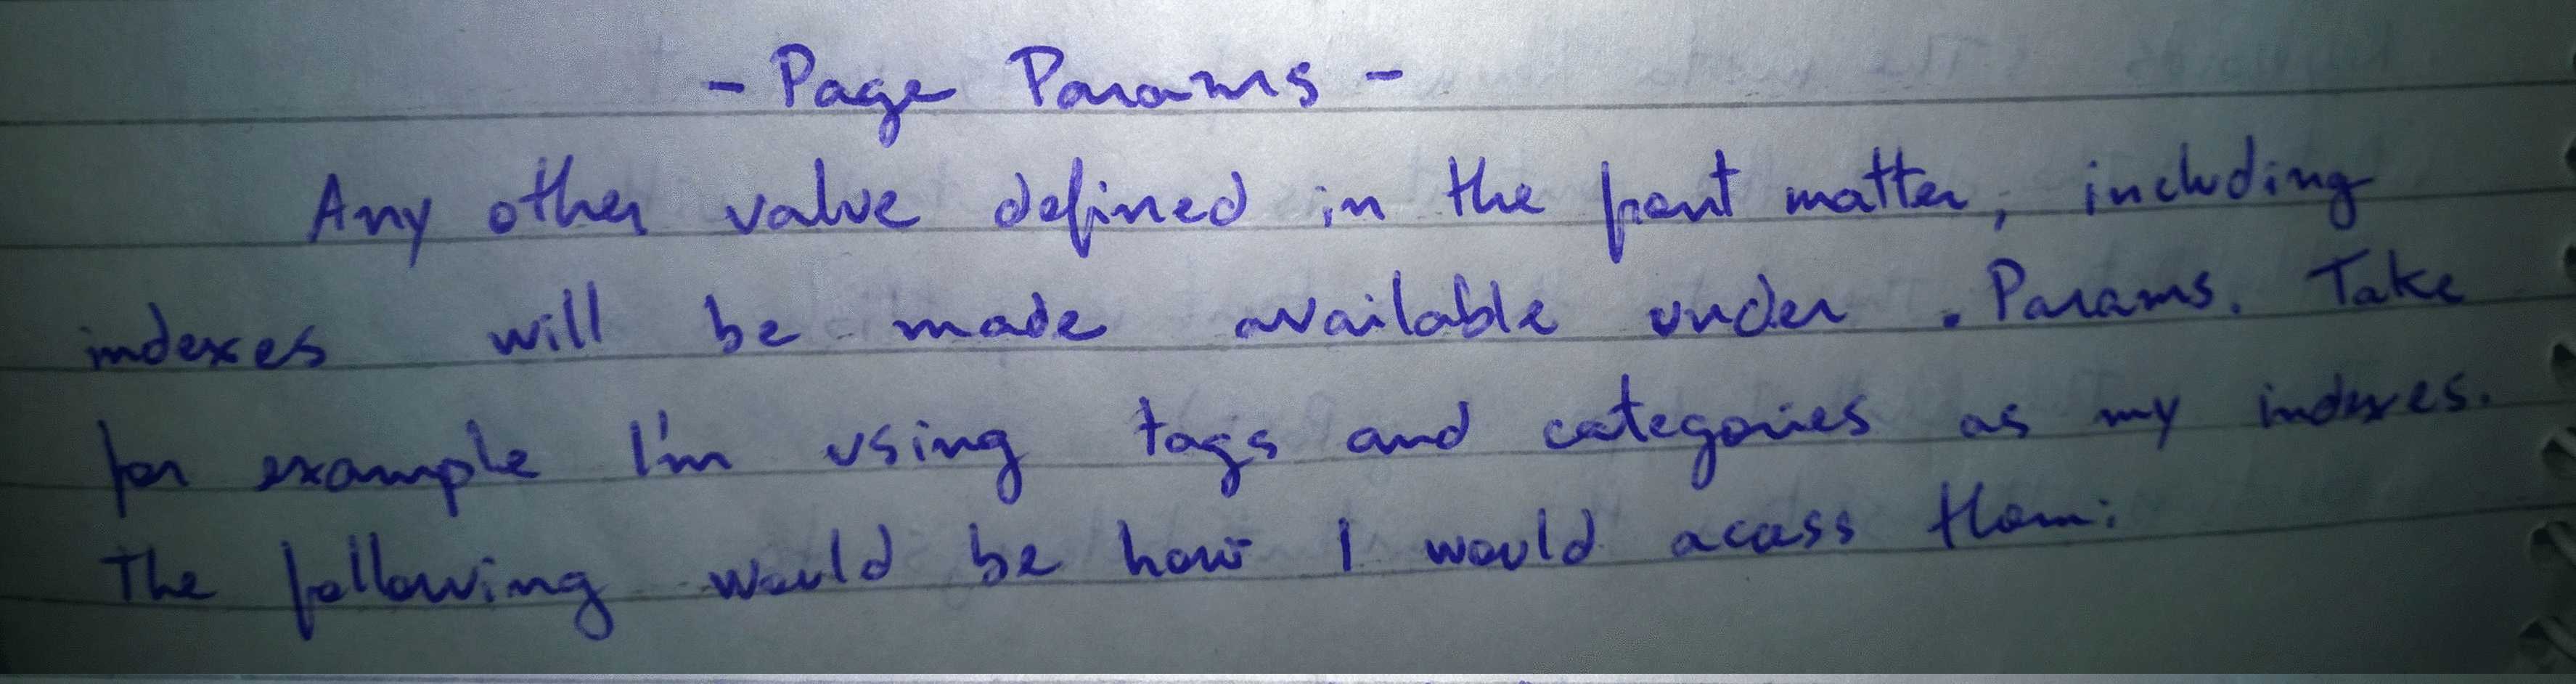 - Page Params -
Any other value defined in the front matter, including
indexes will be made available under .Params. Take
for example I'm using tags and categories as my indexes.
The following would be how I would acass them: